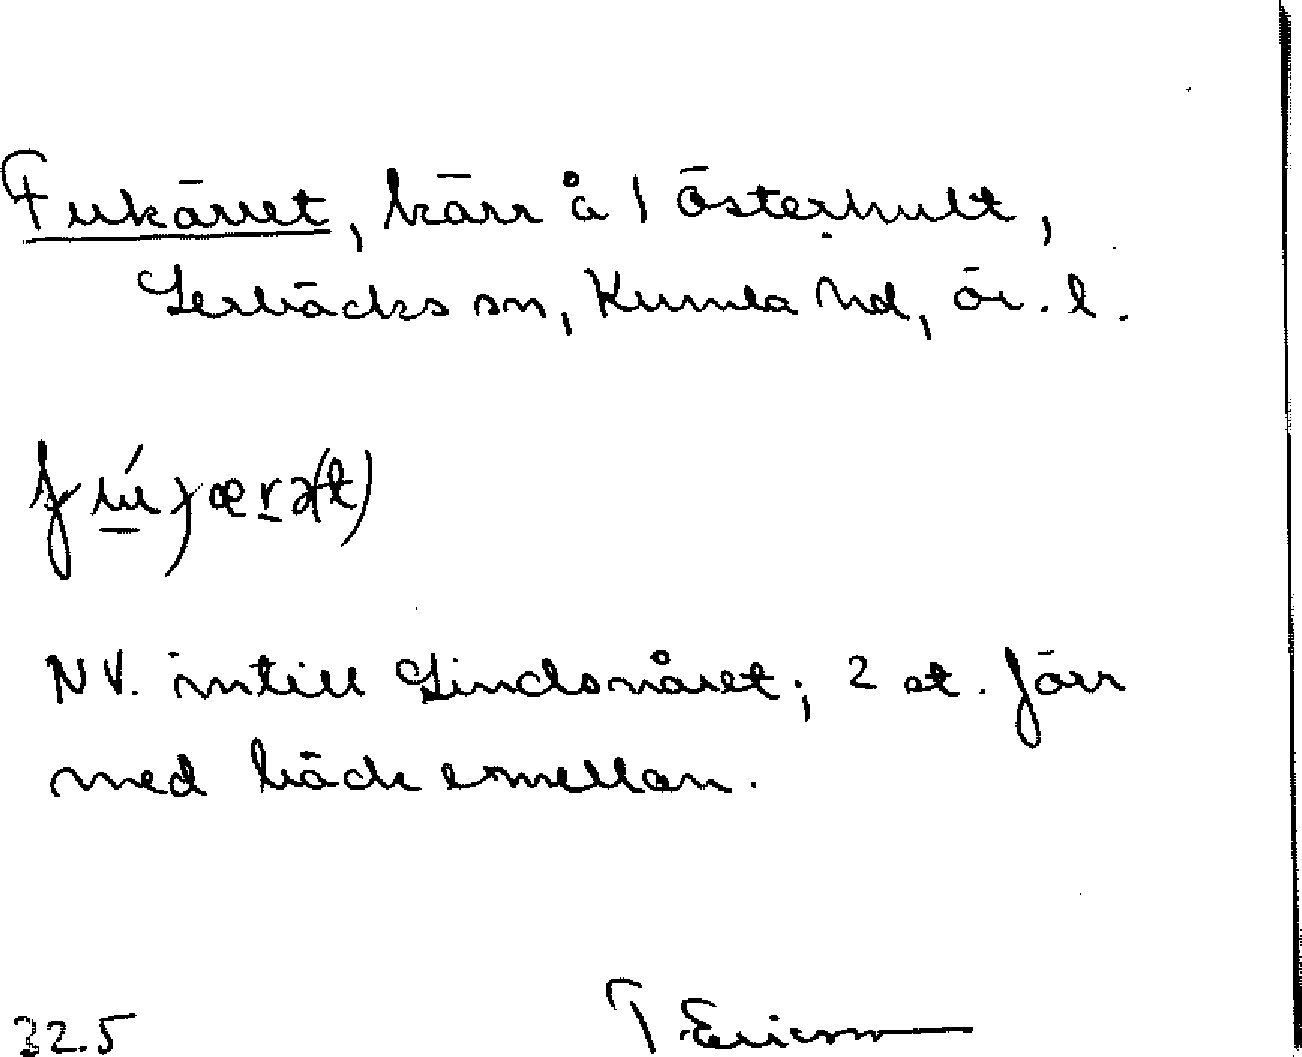 Fukärret, kärr å 1 Österhult,
Lerbäcks sn, Kumla hd, ör. l.
NV. intill Lindsnåret; 2 st. förr
med bäck emellan.
32.5 T Ericsson